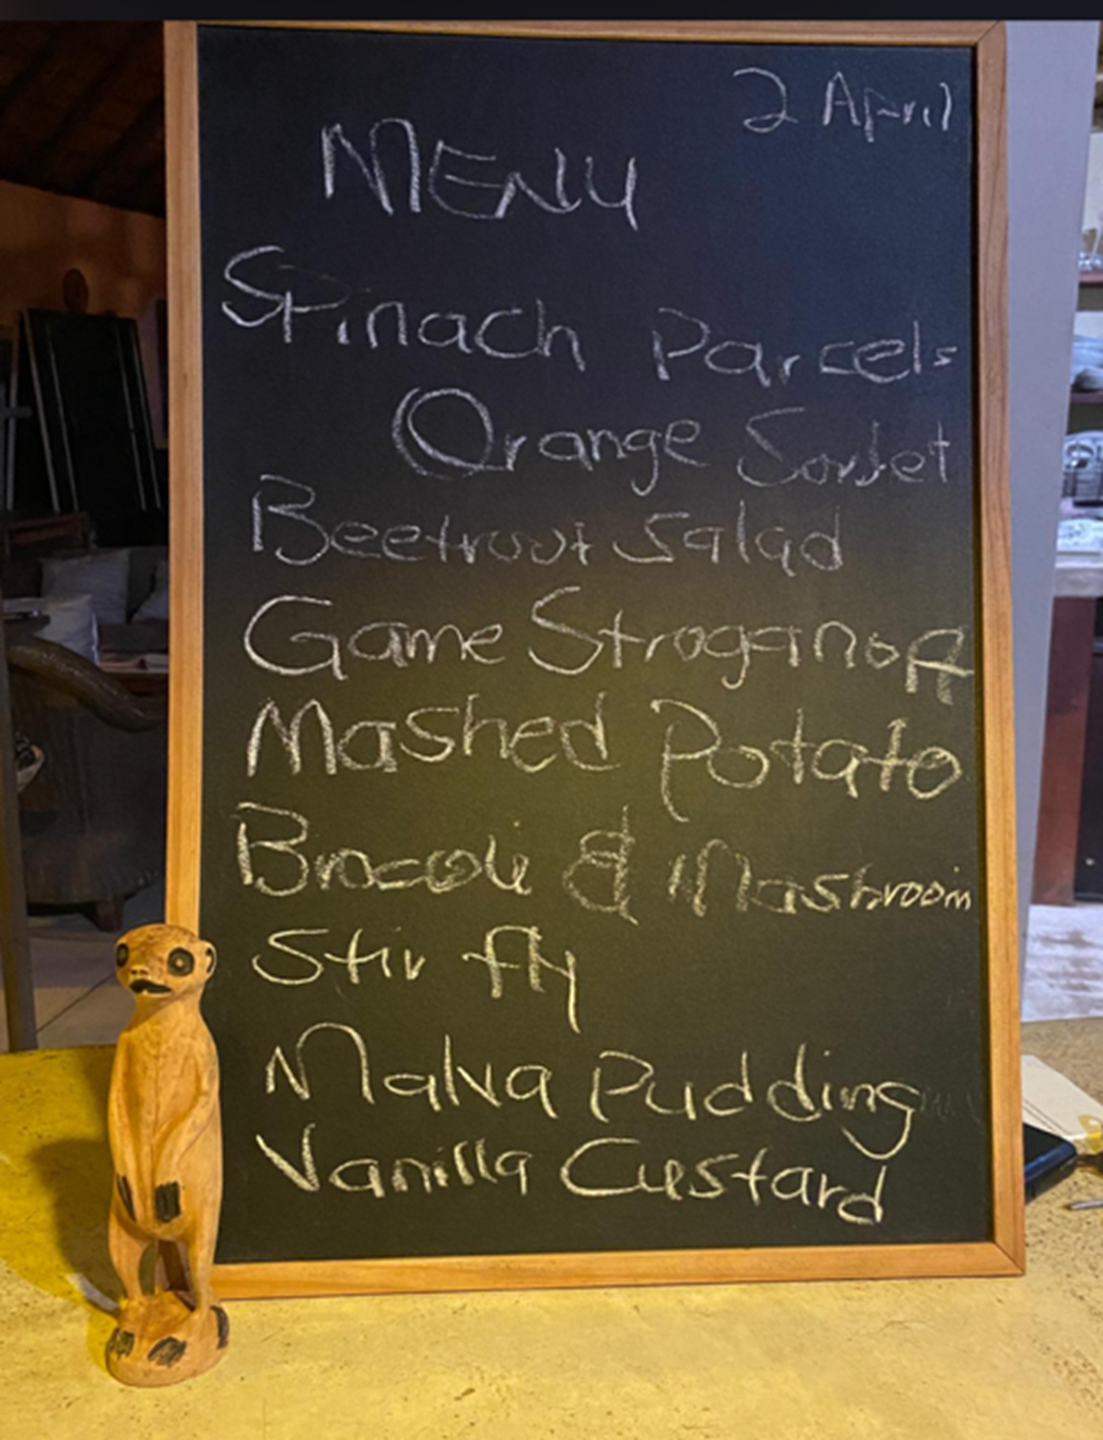 2 April
MENU
Spinach Parcels
Orange Sorbet
Beetroot Salad
Game Stroganoff
Mashed Potato
Brocoli & Mashroom
Stir fry
Malva Pudding
Vanilla Custard